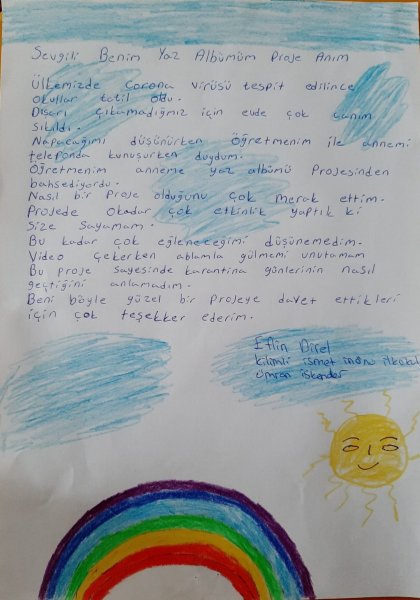 Sevgili Benim Yaz Albümüm Proje Anım
Ülkemizde Corona virüsü tespit edilince
okullar tatil oldu.
Dışarı çıkamadığımız için evde çok canım
sıkıldı.
Napacağımı düşünürken Öğretmenim ile annemi
telefonda konuşurken duydum.
Öğretmenim anneme yaz albümü Projesinden
bahsediyordu.
Nasıl bir Proje olduğunu çok merak ettim.
Projede Okadar çok etkinlik yaptık ki
size Sayamam.
Bu kadar çok eğleneceğimi düşünemedim.
Video çekerken ablamla gülmemi unutamam
Bu proje sayesinde karantina günlerinin nasıl
geçtiğini anlamadım.
Beni böyle güzel bir projeye davet ettikleri
için çok teşekker ederim.
Eflin Direl
kilimli ismet inönü ilkokul
ümran iskender